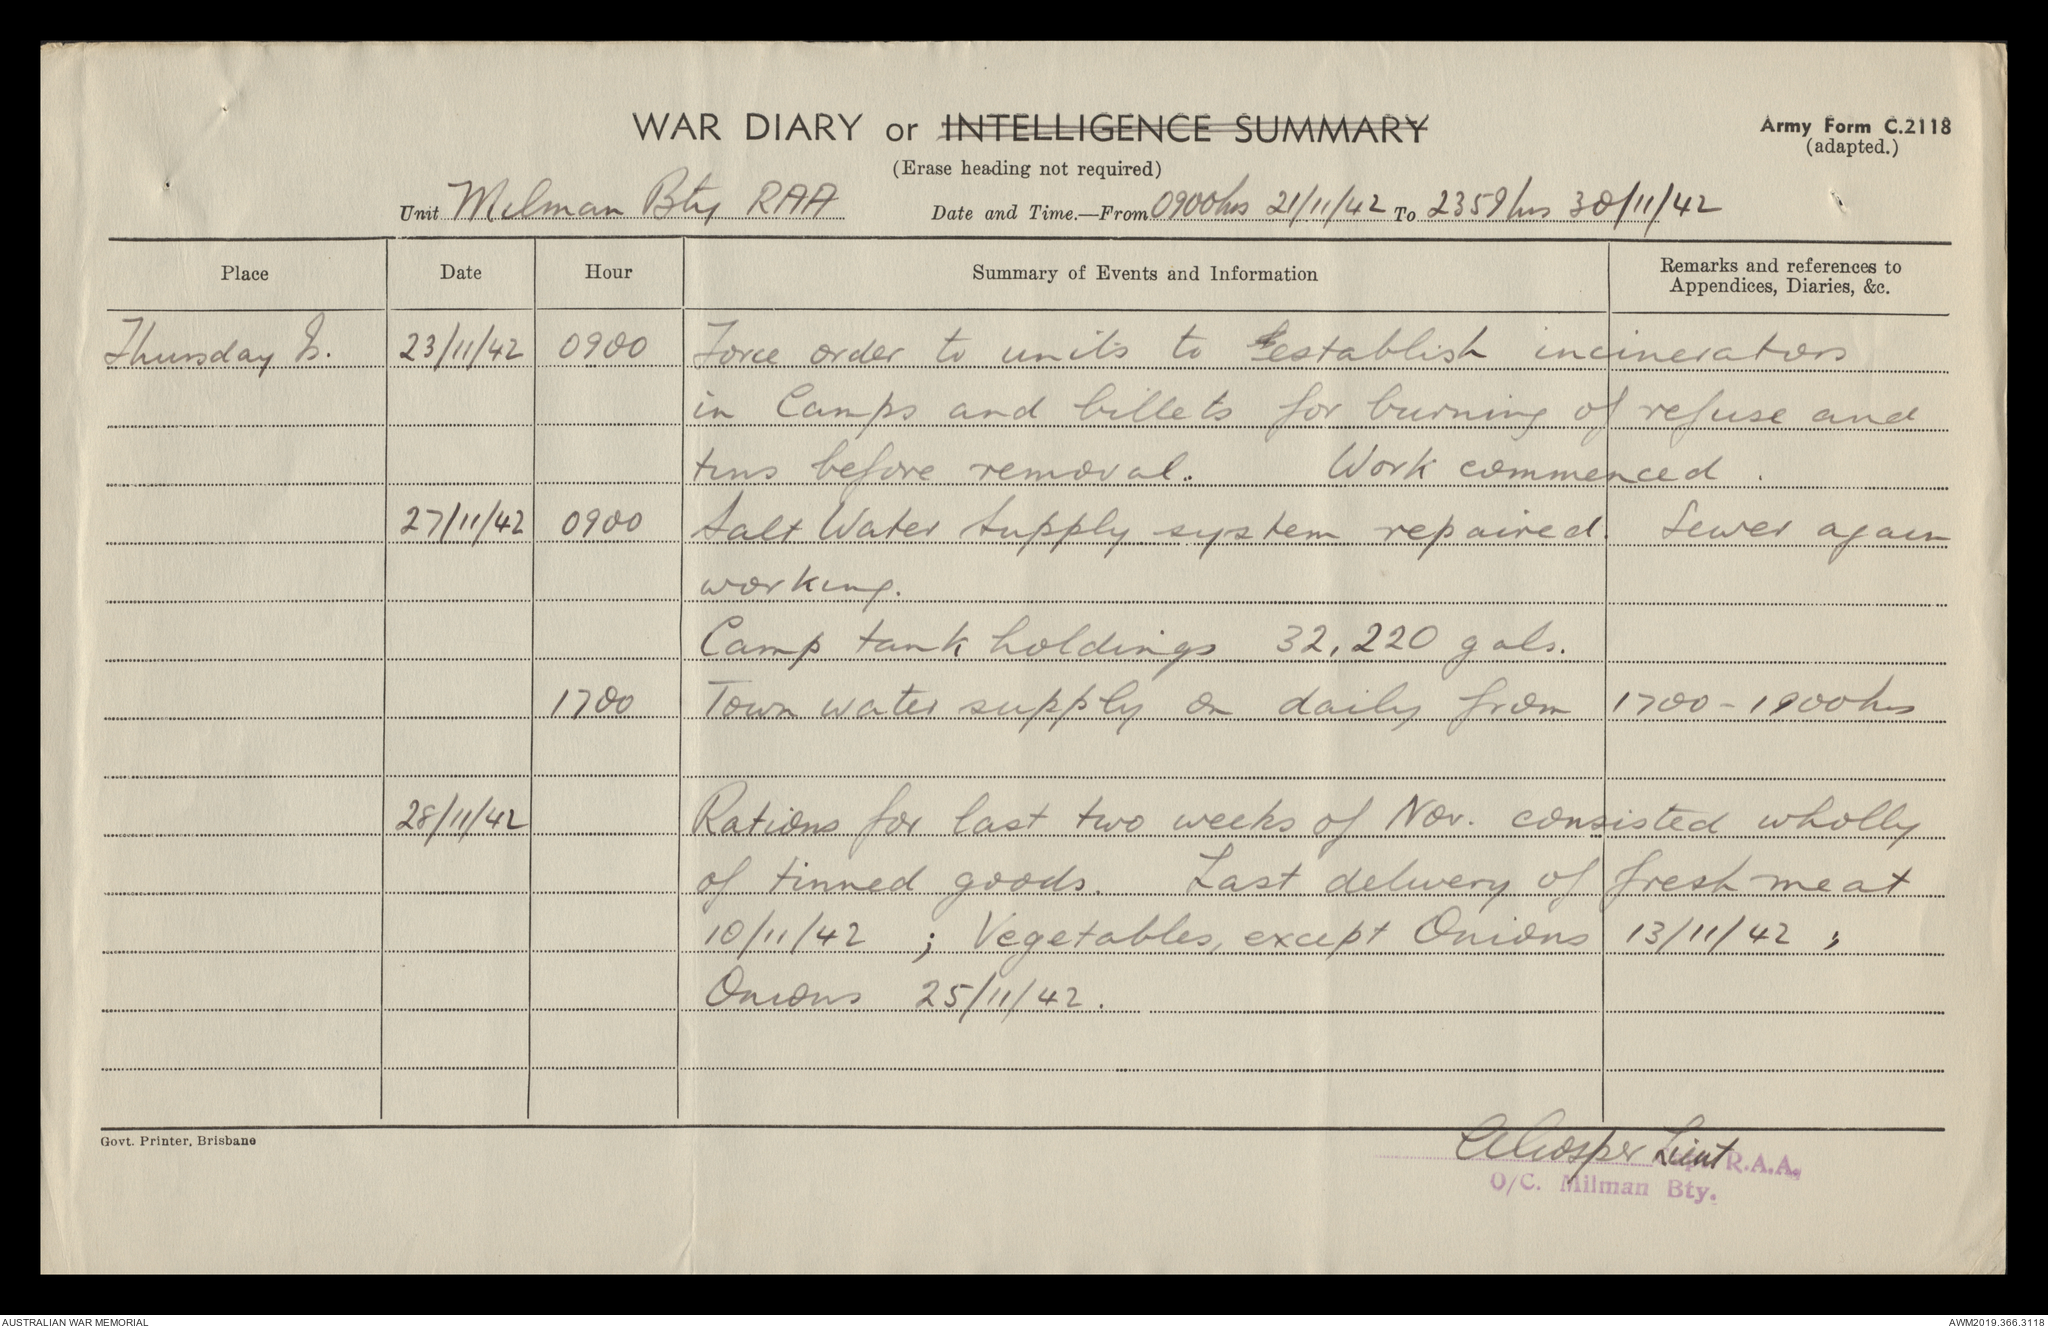 WAR DIARY or INTELLIGENCE SUMMARY
Army Form C.2118
(adapted.)
(Erase heading not required)
Unit Milman Bty RAA Date and Time.—From 0900hrs 21/11/42 To 2359hrs 30/11/42
Place Date Hour Summary of Events and Information Remarks and references to Appendices, Diaries, &c.
Thursday Is. 23/11/42 0900 Force order to units to establish incinerators
in Camps and billets for burning of refuse and
tins before removal. Work commenced.
27/11/42 0900 Salt Water Supply system repaired. Sewer again
working.
Camp tank holdings 32,220 gals.
1700 Town water supply on daily from 1700-1900hrs
28/11/42 Rations for last two weeks of Nov. consisted wholly
of tinned goods. Last delivery of fresh meat
10/11/42 ; Vegetables, except Onions 13/11/42 ;
Onions 25/11/42.
Govt. Printer, Brisbane
Lieut R.A.A.
O/C. Milman Bty.
AUSTRALIAN WAR MEMORIAL
AWM2019.366.3118